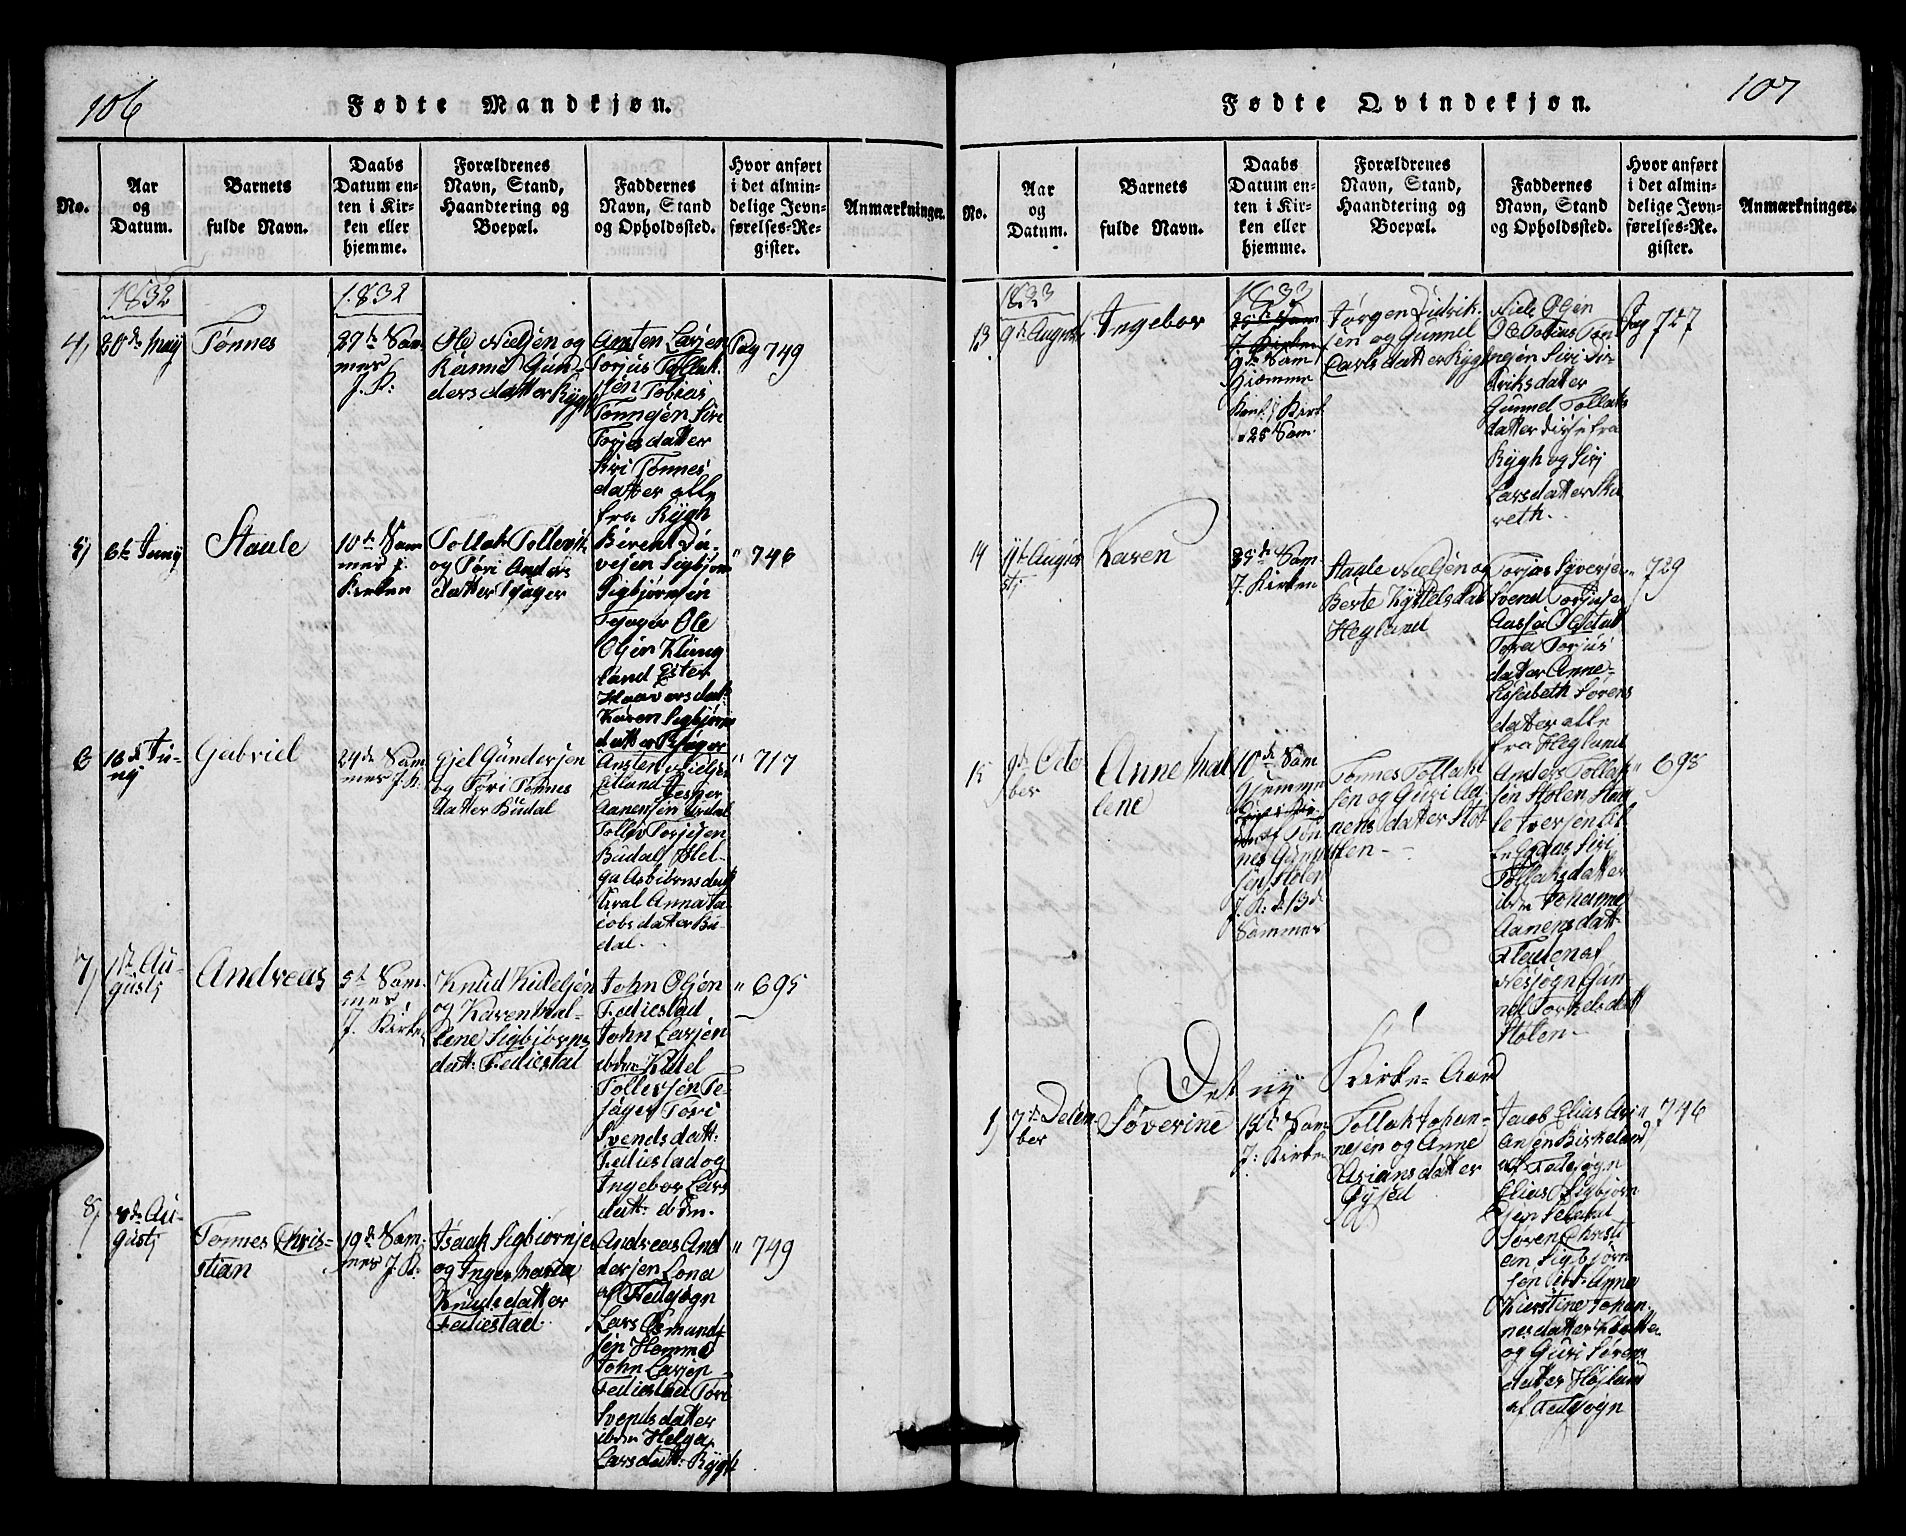 106
Fødte Mandkjøn.
No.
Aar
og
Datum.
Barnets
fulde Navn.
Daabs
Datum en-
ten i Kir-
ken eller
hjemme.
Forældrenes
Navn, Stand,
Haandtering og
Boepæl.
Faddernes
Navn, Stand
og Opholdssted.
Hvor anført
i det almin-
delige Jevn-
førelses-Re-
gister.
Anmærkninger.
1832
1832
4)
20de May
Tønnes
27de Sam-
mes
J. K:
Ole Nielsen og
Gun-
ders datter Rygh
Ansten Larsen
Torjus Tollak
sen Tobias
Tønnesen Siri
Torjesdatter
Siri Tønnes
datter alle
fra Rygh
Pag 749
5)
6te Juny
Staale
10de Sam
mes J.
Kirken
Tollak Tollevsk
og Tøri Anders
datter Tjøger
Berent
Sigbjørn
Sigbjørnsen
Tjøger Ole
Olsen Klung
land Ester
Haaversdat:
Karen Sigbjørns
datter Tjøger
" 746
6
10de Ju-
ny
Gabriel
24de Sam
mes J. K.
Gjel Gundersen
og Tøri Tønnes
datter Budal
Ansten Nielsen
Eiland Jesper
Aanensen
Tollev Torjesen
Budal Hel-
ga Asbiørnsdatt
Anna Ja-
cobsdatter Bu
dal.
" 717
7)
1ste Au-
gusti
Andreas
5te Sam-
mes
J. Kirken
Knud Kidelsen
og Karen Mal-
lene Sigbjørns
datt: Fediestad
John Olsen
Fediestad
John Larsen
ibdm Kidel
Tollevsen Te-
jøger Tøri
Svendsdatt:
Fediestad og
Ingebor Lars
datt: ibdm.
" 695
8)
8de Au-
gusti
Tønnes Chris-
stian
19de Sam-
mes J. K:
Isaak Sigbiørnsen
og Inger Maria
Knudsdatter
Fediestad
Andreas And
dersen Lona
af Fedsogn
Lars Osmund-
sen Homme
John Larsen
Fediestad Tøri
Svendsdatter
ibdm Helga
Larsdatt: Rygh
" 749
107
Fødte Qvindekjøn.
No.
Aar
og
Datum.
Barnets
fulde Navn.
Daabs
Datum en-
ten i Kir-
ken eller
hjemme.
Forældrenes
Navn, Stand,
Haandtering og
Boepæl.
Faddernes
Navn, Stand
og Opholdssted.
Hvor anført
i det almin-
delige Jevn-
førelses-Re-
gister.
Anmærkninger.
1833
1833
13
9de August
Ingebor
25de Sam
J. Kirken
9de Sam
hjemme
Konf. J Kirk
25 Sam
Jørgen Didrik-
sen og Gunnel
Carlsdatter Rygh
Niels Olsen
Tobias Tøn
nesen Siri Di-
driksdatter
Gunnel Tollaks
datter disse fra
Rygh og Siri
Larsdatter
Pag 727
14
August
Karen
25de Sam-
J. Kirken
Staale Nielsen og
Berte Kittelsdat
Hegland
Torjus Syversen
Svend Torjusen
Tora Torjus
datter Anne
Elisabeth Sørens
datter alle
fra Hegland
" 729
15
9de Octo
ber
Anne Mal
lene
10de Sam
Hjemme
Tøn
nes Gunvald
sen Stolen
J. K: d. 13de
Sammes
Tønnes Tollak
sen og Guri Aa-
nensdatter Stol
len
Anders Tollak
sen Stolen Staa
le Iversen
Siri
Tollaksdatter
ibdm Johanne
Aanensdatt.
af
Nessogn Gun
nel Torkelsdatt
Stolen
" 698
Det ny Kirke-Aar
1)
7de Decem-
ber
Søverine
15de Sam
J: Kirken
Tollak Johan-
nesen og Anne
Arians datter
Øysæd
Jacob Elias Ari
ansen Birkeland
af Fedesogn
Elias Sigbjørn
sen
Søren Christi
an Sigbjørn
sen ibd: Anna
Kierstine Johan-
nesdatter
og Guri Sørens
datter Højland
af Fedsogn
" 746